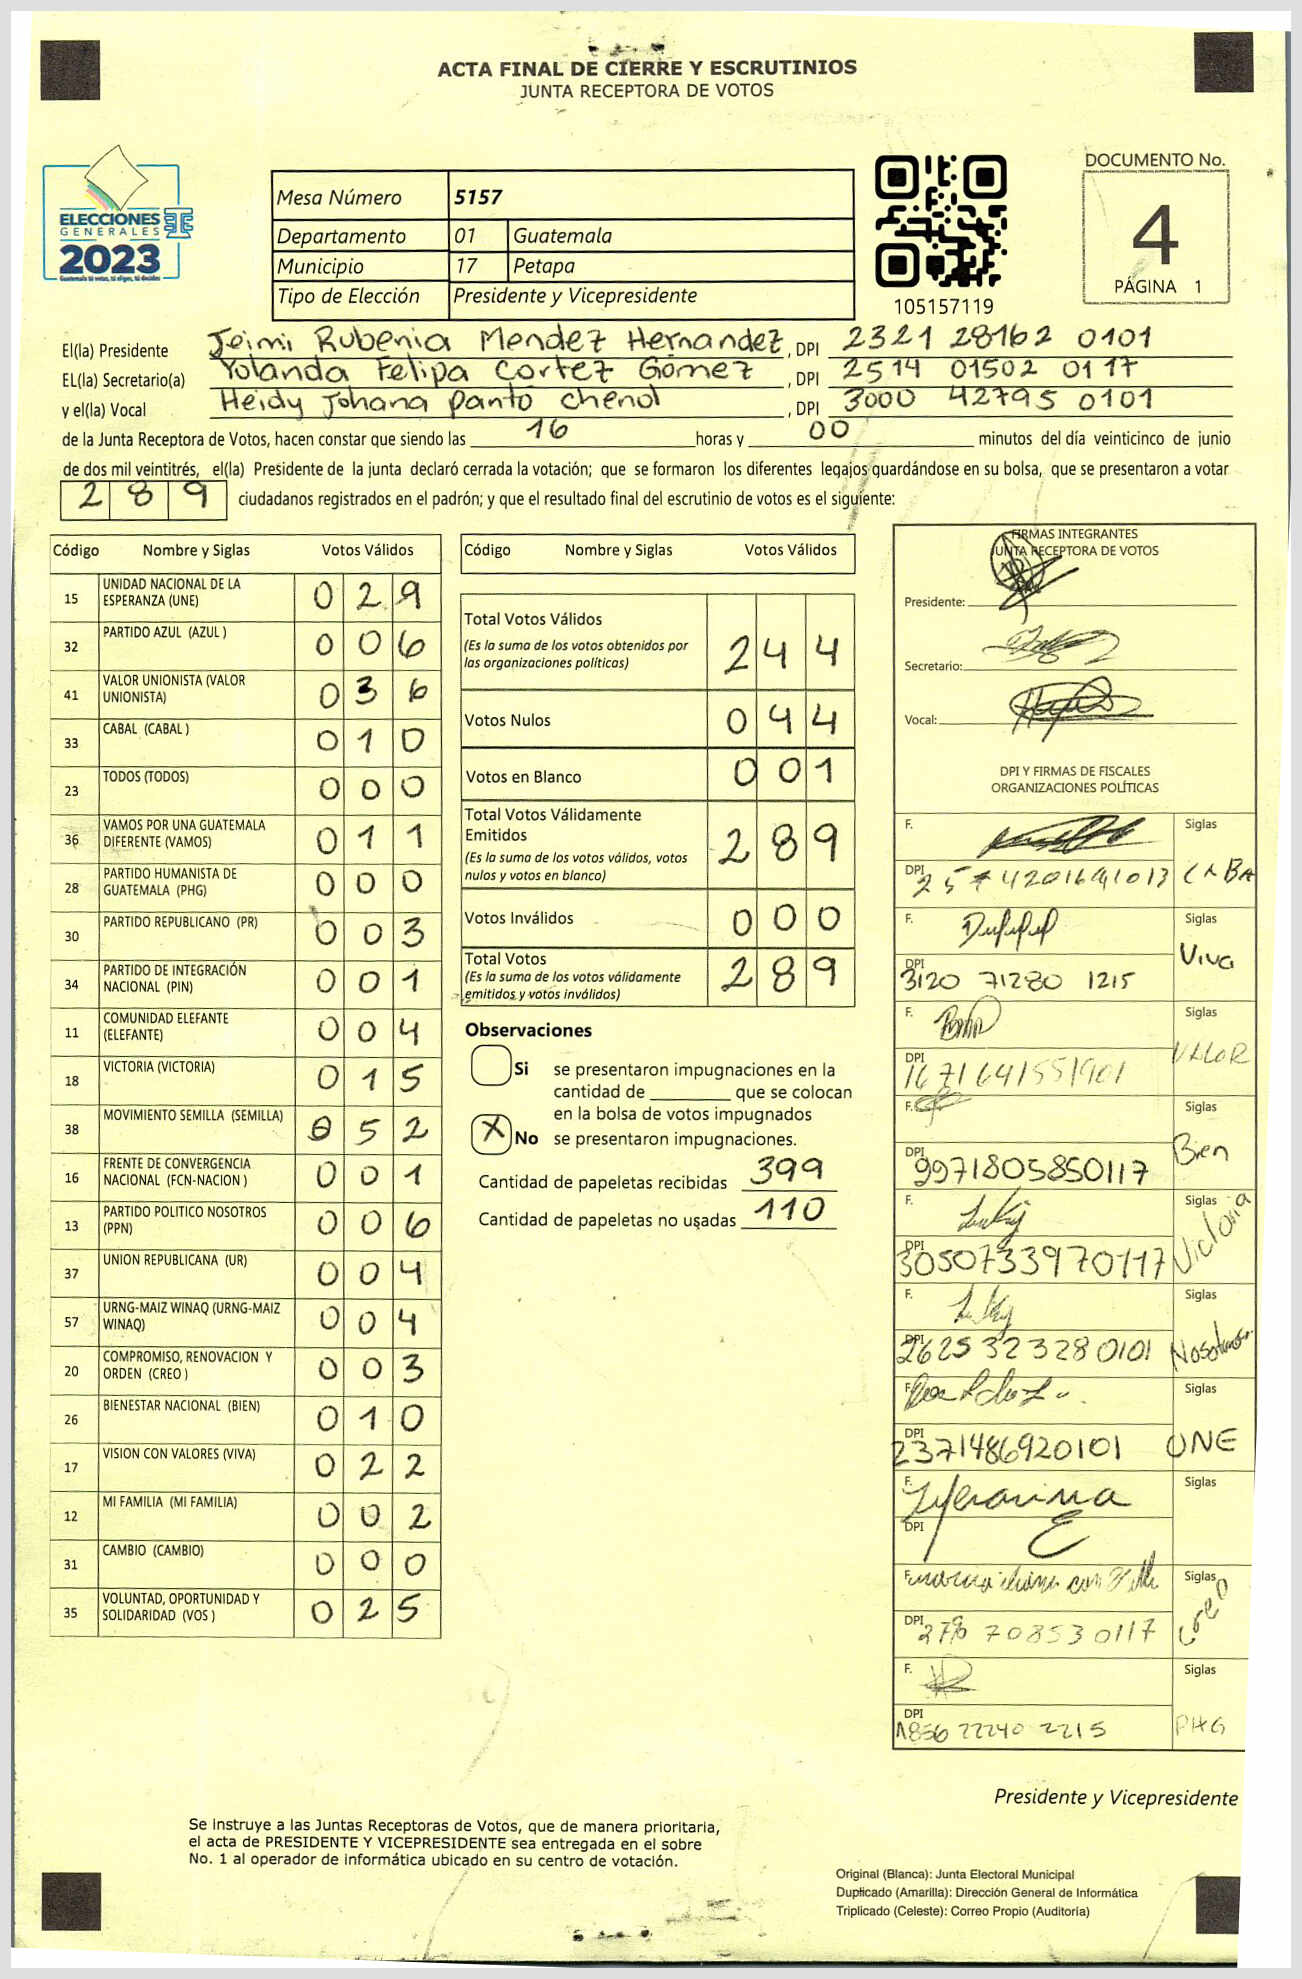 ACTA FINAL DE CIERRE Y ESCRUTINIOS
JUNTA RECEPTORA DE VOTOS
ELECCIONES
GENERALES
2023
Guatemala tú votas, tú eliges, tú decides
Mesa Número 5157
Departamento 01 Guatemala
Municipio 17 Petapa
Tipo de Elección Presidente y Vicepresidente
105157119
DOCUMENTO No.
4
PÁGINA 1
El(la) Presidente Jeimi Rubenia Mendez Hernandez, DPI 2321 28162 0101
EL(la) Secretario(a) Yolanda Felipa Cortez Gómez, DPI 2514 01502 0117
y el(la) Vocal Heidy Johana Panto Chenol, DPI 3000 42795 0101
de la Junta Receptora de Votos, hacen constar que siendo las 16 horas y 00 minutos del día veinticinco de junio
de dos mil veintitrés, el(la) Presidente de la junta declaró cerrada la votación; que se formaron los diferentes legajos guardándose en su bolsa, que se presentaron a votar
289 ciudadanos registrados en el padrón; y que el resultado final del escrutinio de votos es el siguiente:
Código Nombre y Siglas Votos Válidos
15 UNIDAD NACIONAL DE LA ESPERANZA (UNE) 029
32 PARTIDO AZUL (AZUL ) 006
41 VALOR UNIONISTA (VALOR UNIONISTA) 036
33 CABAL (CABAL ) 010
23 TODOS (TODOS) 000
36 VAMOS POR UNA GUATEMALA DIFERENTE (VAMOS) 011
28 PARTIDO HUMANISTA DE GUATEMALA (PHG) 000
30 PARTIDO REPUBLICANO (PR) 003
34 PARTIDO DE INTEGRACIÓN NACIONAL (PIN) 001
11 COMUNIDAD ELEFANTE (ELEFANTE) 004
18 VICTORIA (VICTORIA) 015
38 MOVIMIENTO SEMILLA (SEMILLA) 052
16 FRENTE DE CONVERGENCIA NACIONAL (FCN-NACION ) 001
13 PARTIDO POLITICO NOSOTROS (PPN) 006
37 UNION REPUBLICANA (UR) 004
57 URNG-MAIZ WINAQ (URNG-MAIZ WINAQ) 004
20 COMPROMISO, RENOVACION Y ORDEN (CREO ) 003
26 BIENESTAR NACIONAL (BIEN) 010
17 VISION CON VALORES (VIVA) 022
12 MI FAMILIA (MI FAMILIA) 002
31 CAMBIO (CAMBIO) 000
35 VOLUNTAD, OPORTUNIDAD Y SOLIDARIDAD (VOS ) 025
Código Nombre y Siglas Votos Válidos
Total Votos Válidos 244
(Es la suma de los votos obtenidos por
las organizaciones políticas)
Votos Nulos 044
Votos en Blanco 001
Total Votos Válidamente
Emitidos 289
(Es la suma de los votos válidos, votos
nulos y votos en blanco)
Votos Inválidos 000
Total Votos 289
(Es la suma de los votos válidamente
emitidos y votos inválidos)
Observaciones
Si se presentaron impugnaciones en la
cantidad de ________ que se colocan
en la bolsa de votos impugnados
X No se presentaron impugnaciones.
Cantidad de papeletas recibidas 399
Cantidad de papeletas no usadas 110
FIRMAS INTEGRANTES
JUNTA RECEPTORA DE VOTOS
Presidente:
Secretario:
Vocal:
DPI Y FIRMAS DE FISCALES
ORGANIZACIONES POLÍTICAS
F. Siglas
DPI CABA
F. Siglas
DPI 3120 71280 1215 Viva
F. Siglas
DPI 1671641551901 VALOR
F. Siglas
DPI 9971805850117 Bien
F. Siglas
DPI 3050733970117 Victoria
F. Siglas
DPI 2625323280101 Nosotros
F. Siglas
DPI 2371486920101 UNE
F. Siglas
DPI
F. Siglas
DPI 708530117 Creo
F. Siglas
DPI 1856 22240 2215 PHG
Presidente y Vicepresidente
Se instruye a las Juntas Receptoras de Votos, que de manera prioritaria,
el acta de PRESIDENTE Y VICEPRESIDENTE sea entregada en el sobre
No. 1 al operador de informática ubicado en su centro de votación.
Original (Blanca): Junta Electoral Municipal
Duplicado (Amarilla): Dirección General de Informática
Triplicado (Celeste): Correo Propio (Auditoría)